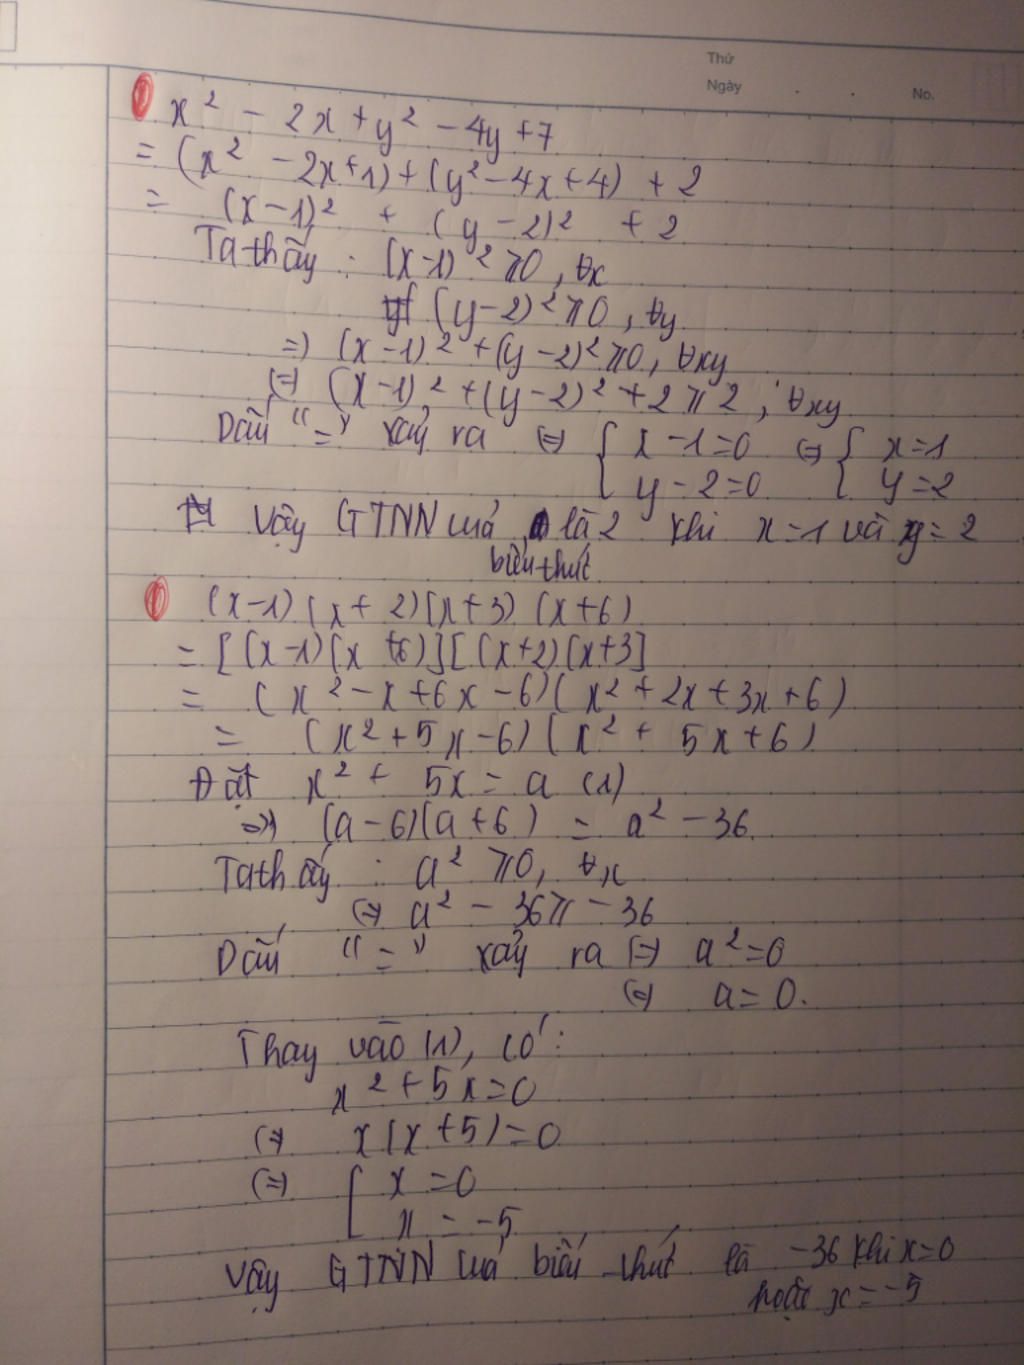 Thứ
Ngày . . No.
x² - 2x + y² - 4y + 7
= (x² - 2x + 1) + (y² - 4x + 4) + 2
= (x - 1)² + (y - 2)² + 2
Ta thấy : (x - 1)² ≥ 0, ∀x
(y - 2)² ≥ 0, ∀y
=> (x - 1)² + (y - 2)² ≥ 0, ∀xy
<=> (x - 1)² + (y - 2)² + 2 ≥ 2, ∀xy
Dấu "=" xảy ra <=> { x - 1 = 0 <=> { x = 1
y - 2 = 0 y = 2
Vậy GTNN của biểu thức là 2 khi x = 1 và y = 2
(x - 1)(x + 2)(x + 3)(x + 6)
= [(x - 1)(x + 6)][(x + 2)(x + 3]
= (x² - x + 6x - 6)(x² + 2x + 3x + 6)
= (x² + 5x - 6)(x² + 5x + 6)
Đặt x² + 5x = a (1)
=> (a - 6)(a + 6) = a² - 36
Ta thấy : a² ≥ 0, ∀x
<=> a² - 36 ≥ -36
Dấu "=" xảy ra <=> a² = 0
<=> a = 0.
Thay vào (1), có :
x² + 5x = 0
<=> x(x + 5) = 0
<=> [ x = 0
x = -5
Vậy GTNN của biểu thức là -36 khi x = 0
hoặc x = -5